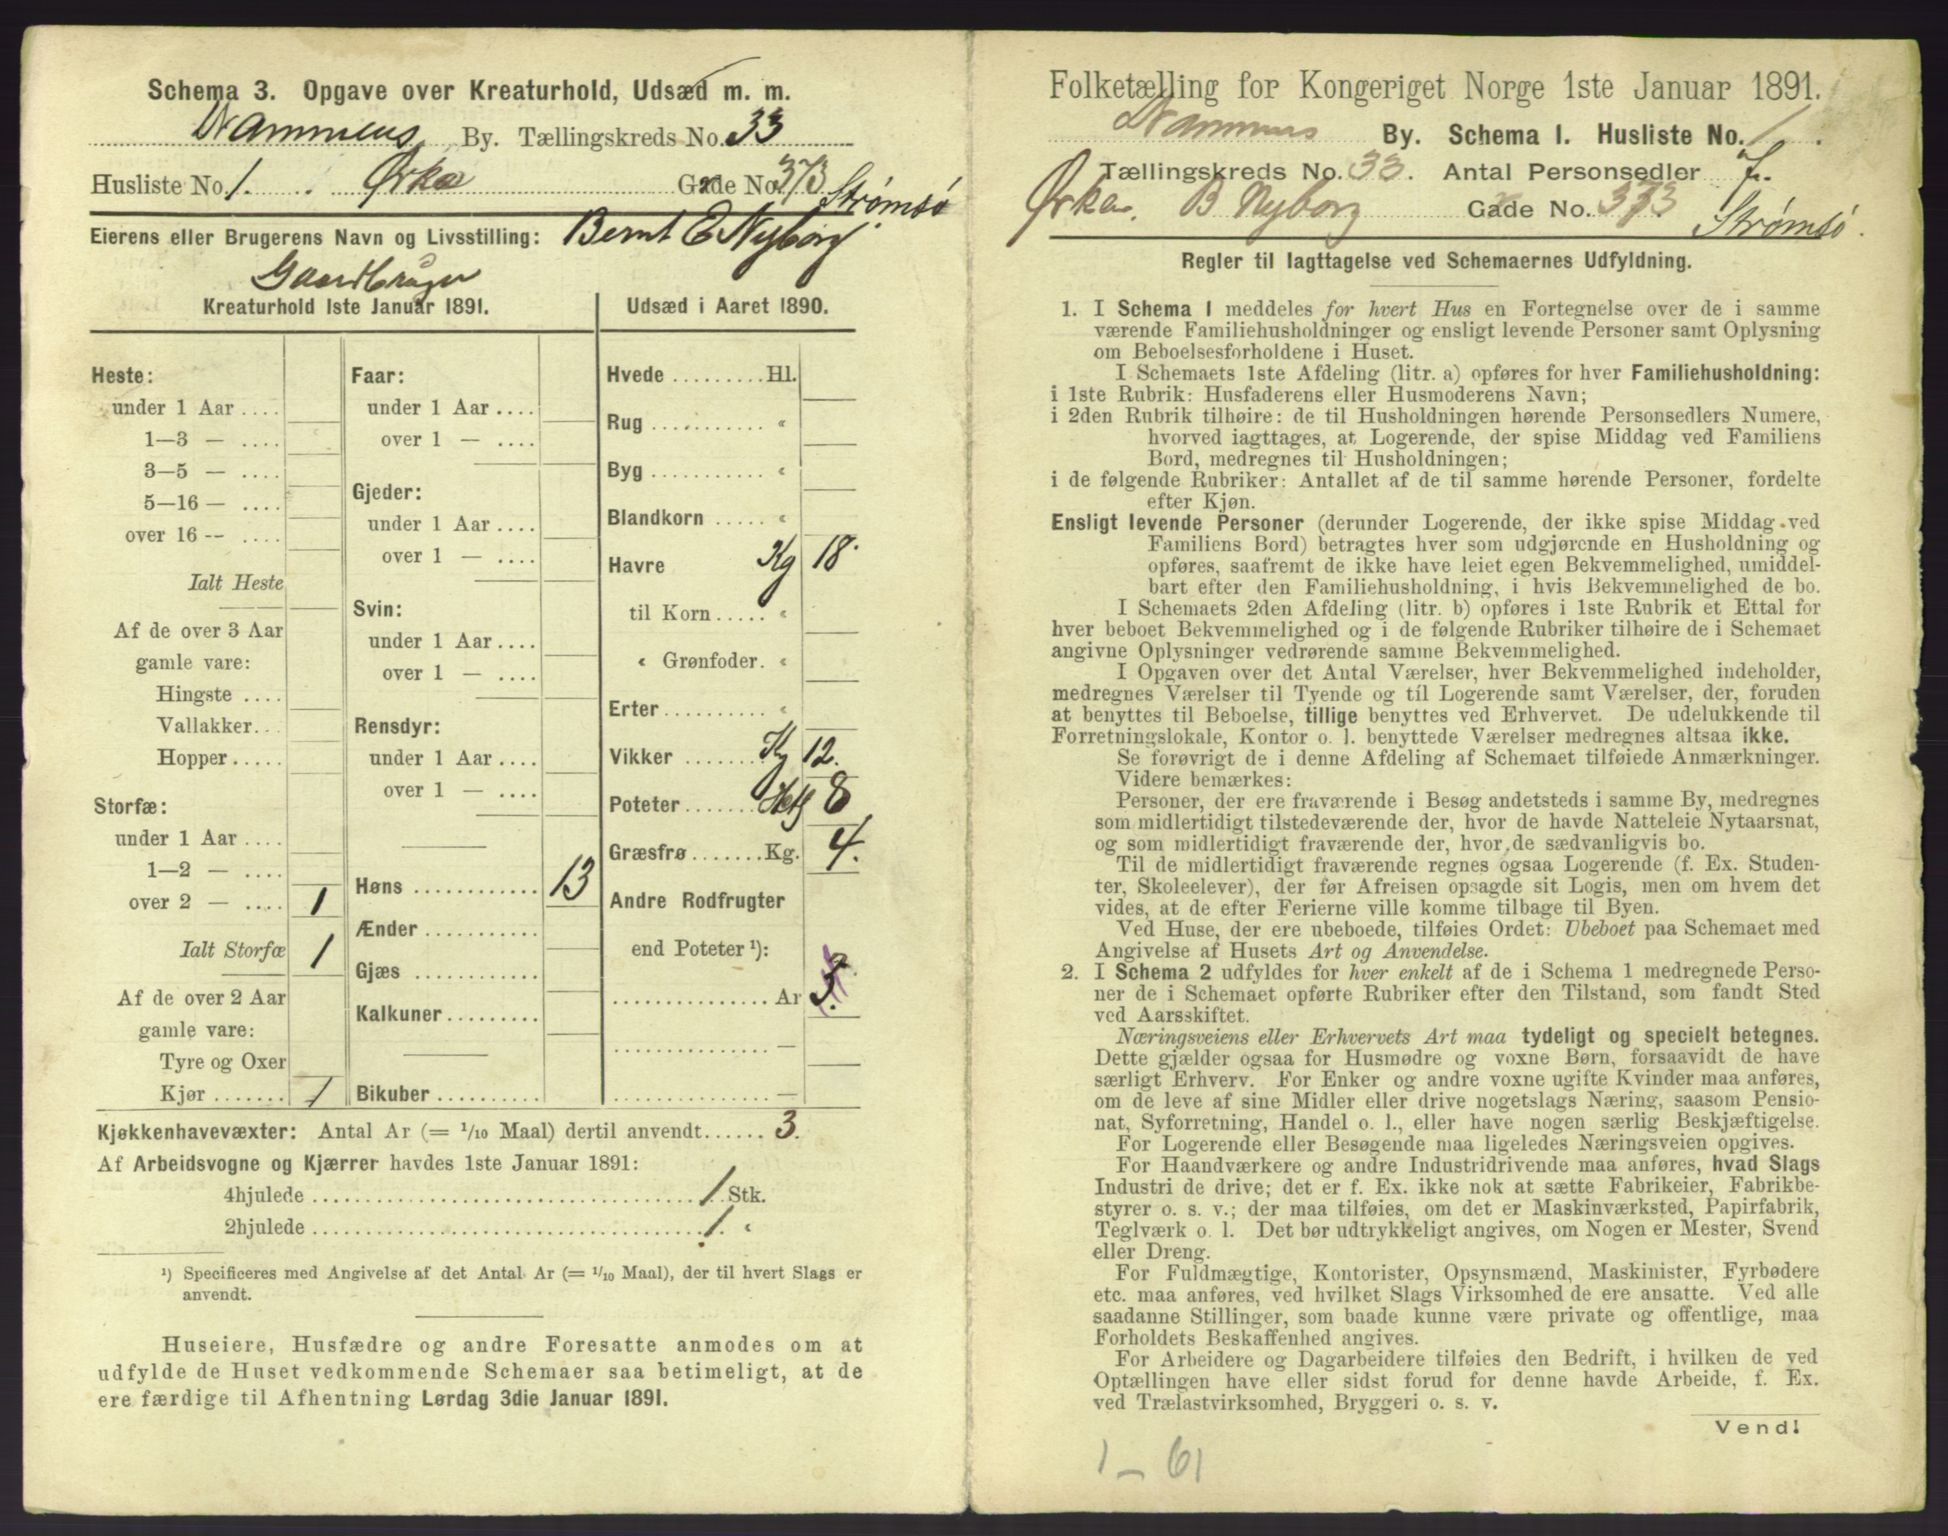 Schema 3. Opgave over Kreaturhold, Udsæd m. m.
Drammens By. Tællingskreds No. 33
Husliste No. 1. Ørka Gade No. 373 Strømsø
Eierens eller Brugerens Navn og Livsstilling: Bernt E Nyborg
Gaardbruger
Kreaturhold 1ste Januar 1891.
Heste:
under 1 Aar ....
1—3 — ....
3—5 — ....
5—16 — ....
over 16 -- ....
Ialt Heste
Af de over 3 Aar
gamle vare:
Hingste ....
Vallakker...
Hopper .....
Storfæ:
under 1 Aar ....
1—2 — ....
over 2 — .... 1
Ialt Storfæ 1
Af de over 2 Aar
gamle vare:
Tyre og Oxer
Kjør ....... 1
Faar:
under 1 Aar ....
over 1 — ....
Gjeder:
under 1 Aar ....
over 1 — ....
Svin:
under 1 Aar ....
over 1 — ....
Rensdyr:
under 1 Aar ....
over 1 — ....
Høns ............ 13
Ænder ...........
Gjæs ............
Kalkuner .........
Bikuber ..........
Udsæd i Aaret 1890.
Hvede ......... Hl.
Rug ........... "
Byg ........... "
Blandkorn ..... "
Havre Kg 18.
til Korn ..... "
" Grønfoder. "
Erter .......... "
Vikker ....... Kg 12.
Poteter ....... Hekt 8
Græsfrø ....... Kg. 4.
Andre Rodfrugter
end Poteter ¹):
............... Ar 3.
............... —
............... —
Kjøkkenhavevæxter: Antal Ar (= 1/10 Maal) dertil anvendt...... 3.
Af Arbeidsvogne og Kjærrer havdes 1ste Januar 1891:
4hjulede .................................... 1 Stk.
2hjulede .................................... 1. "
¹) Specificeres med Angivelse af det Antal Ar (= 1/10 Maal), der til hvert Slags er
anvendt.
Huseiere, Husfædre og andre Foresatte anmodes om at
udfylde de Huset vedkommende Schemaer saa betimeligt, at de
ere færdige til Afhentning Lørdag 3die Januar 1891.
Folketælling for Kongeriget Norge 1ste Januar 1891.
Drammens By. Schema 1. Husliste No. 1.
Tællingskreds No. 33. Antal Personsedler 7.
Ørka. B Nyborg Gade No. 373
Strømsø.
Regler til Iagttagelse ved Schemaernes Udfyldning.
1. I Schema 1 meddeles for hvert Hus en Fortegnelse over de i samme
værende Familiehusholdninger og ensligt levende Personer samt Oplysning
om Beboelsesforholdene i Huset.
I Schemaets 1ste Afdeling (litr. a) opføres for hver Familiehusholdning:
i 1ste Rubrik: Husfaderens eller Husmoderens Navn;
i 2den Rubrik tilhøire: de til Husholdningen hørende Personsedlers Numere,
hvorved iagttages, at Logerende, der spise Middag ved Familiens
Bord, medregnes til Husholdningen;
i de følgende Rubriker: Antallet af de til samme hørende Personer, fordelte
efter Kjøn.
Ensligt levende Personer (derunder Logerende, der ikke spise Middag ved
Familiens Bord) betragtes hver som udgjørende en Husholdning og
opføres, saafremt de ikke have leiet egen Bekvemmelighed, umiddel-
bart efter den Familiehusholdning, i hvis Bekvemmelighed de bo.
I Schemaets 2den Afdeling (litr. b) opføres i 1ste Rubrik et Ettal for
hver beboet Bekvemmelighed og i de følgende Rubriker tilhøire de i Schemaet
angivne Oplysninger vedrørende samme Bekvemmelighed.
I Opgaven over det Antal Værelser, hver Bekvemmelighed indeholder,
medregnes Værelser til Tyende og til Logerende samt Værelser, der, foruden
at benyttes til Beboelse, tillige benyttes ved Erhvervet. De udelukkende til
Forretningslokale, Kontor o. l. benyttede Værelser medregnes altsaa ikke.
Se forøvrigt de i denne Afdeling af Schemaet tilføiede Anmærkninger.
Videre bemærkes:
Personer, der ere fraværende i Besøg andetsteds i samme By, medregnes
som midlertidigt tilstedeværende der, hvor de havde Natteleie Nytaarsnat,
og som midlertidigt fraværende der, hvor de sædvanligvis bo.
Til de midlertidigt fraværende regnes ogsaa Logerende (f. Ex. Studen-
ter, Skoleelever), der før Afreisen opsagde sit Logis, men om hvem det
vides, at de efter Ferierne ville komme tilbage til Byen.
Ved Huse, der ere ubeboede, tilføies Ordet: Ubeboet paa Schemaet med
Angivelse af Husets Art og Anvendelse.
2. I Schema 2 udfyldes for hver enkelt af de i Schema 1 medregnede Perso-
ner de i Schemaet opførte Rubriker efter den Tilstand, som fandt Sted
ved Aarsskiftet.
Næringsveiens eller Erhvervets Art maa tydeligt og specielt betegnes.
Dette gjælder ogsaa for Husmødre og voxne Børn, forsaavidt de have
særligt Erhverv. For Enker og andre voxne ugifte Kvinder maa anføres,
om de leve af sine Midler eller drive nogetslags Næring, saasom Pensio-
nat, Syforretning, Handel o. l., eller have nogen særlig Beskjæftigelse.
For Logerende eller Besøgende maa ligeledes Næringsveien opgives.
For Haandværkere og andre Industridrivende maa anføres, hvad Slags
Industri de drive; det er f. Ex. ikke nok at sætte Fabrikeier, Fabrikbe-
styrer o. s. v.; der maa tilføies, om det er Maskinværksted, Papirfabrik,
Teglværk o. l. Det bør udtrykkeligt angives, om Nogen er Mester, Svend
eller Dreng.
For Fuldmægtige, Kontorister, Opsynsmænd, Maskinister, Fyrbødere
etc. maa anføres, ved hvilket Slags Virksomhed de ere ansatte. Ved alle
saadanne Stillinger, som baade kunne være private og offentlige, maa
Forholdets Beskaffenhed angives.
For Arbeidere og Dagarbeidere tilføies den Bedrift, i hvilken de ved
Optællingen have eller sidst forud for denne havde Arbeide, f. Ex.
ved Trælastvirksomhed, Bryggeri o. s. v.
Vend!
1 – 61